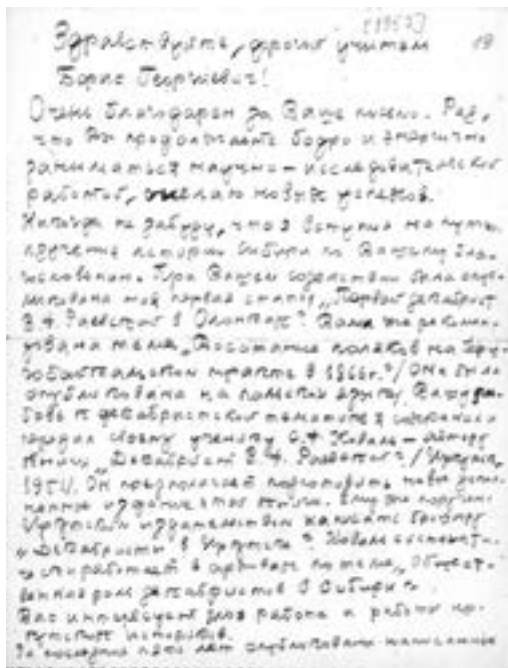 [1957]
Здравствуйте, дорогой учитель 19
Борис Георгиевич!
Очень благодарен за Ваше письмо. Рад,
что Вы продолжаете бодро и энергично
заниматься научно-исследовательской
работой, желаю новых успехов.
Никогда не забуду, что я вступил на путь
изучения истории Сибири по Вашему бла-
гословению. При Вашем содействии была опуб-
ликована моя первая статья „Первый декабрист
В.Ф. Раевский в Олонках". Вами же рекомен-
дована тема „Восстание поляков на Кру-
гобайкальском тракте в 1866 г."/Она была
опубликована на польском языке/.
бовь к декабристской тематике я сохранил и
передал своему ученику С.Ф. Ковалю – автору
книги „Декабрист В.Ф. Раевский"/Иркутск,
1951/. Он предполагает подготовить новое допол-
ненное издание этой книги. Ему же поручено
Иркутским издательством написать брошюру
„Декабристы в Иркутске". Коваль
работает в архивах по теме „Общест-
венная роль декабристов в Сибири".
Вас интересует моя работа и работа ир-
кутских историков.
За последние пять лет опубликованы написанные